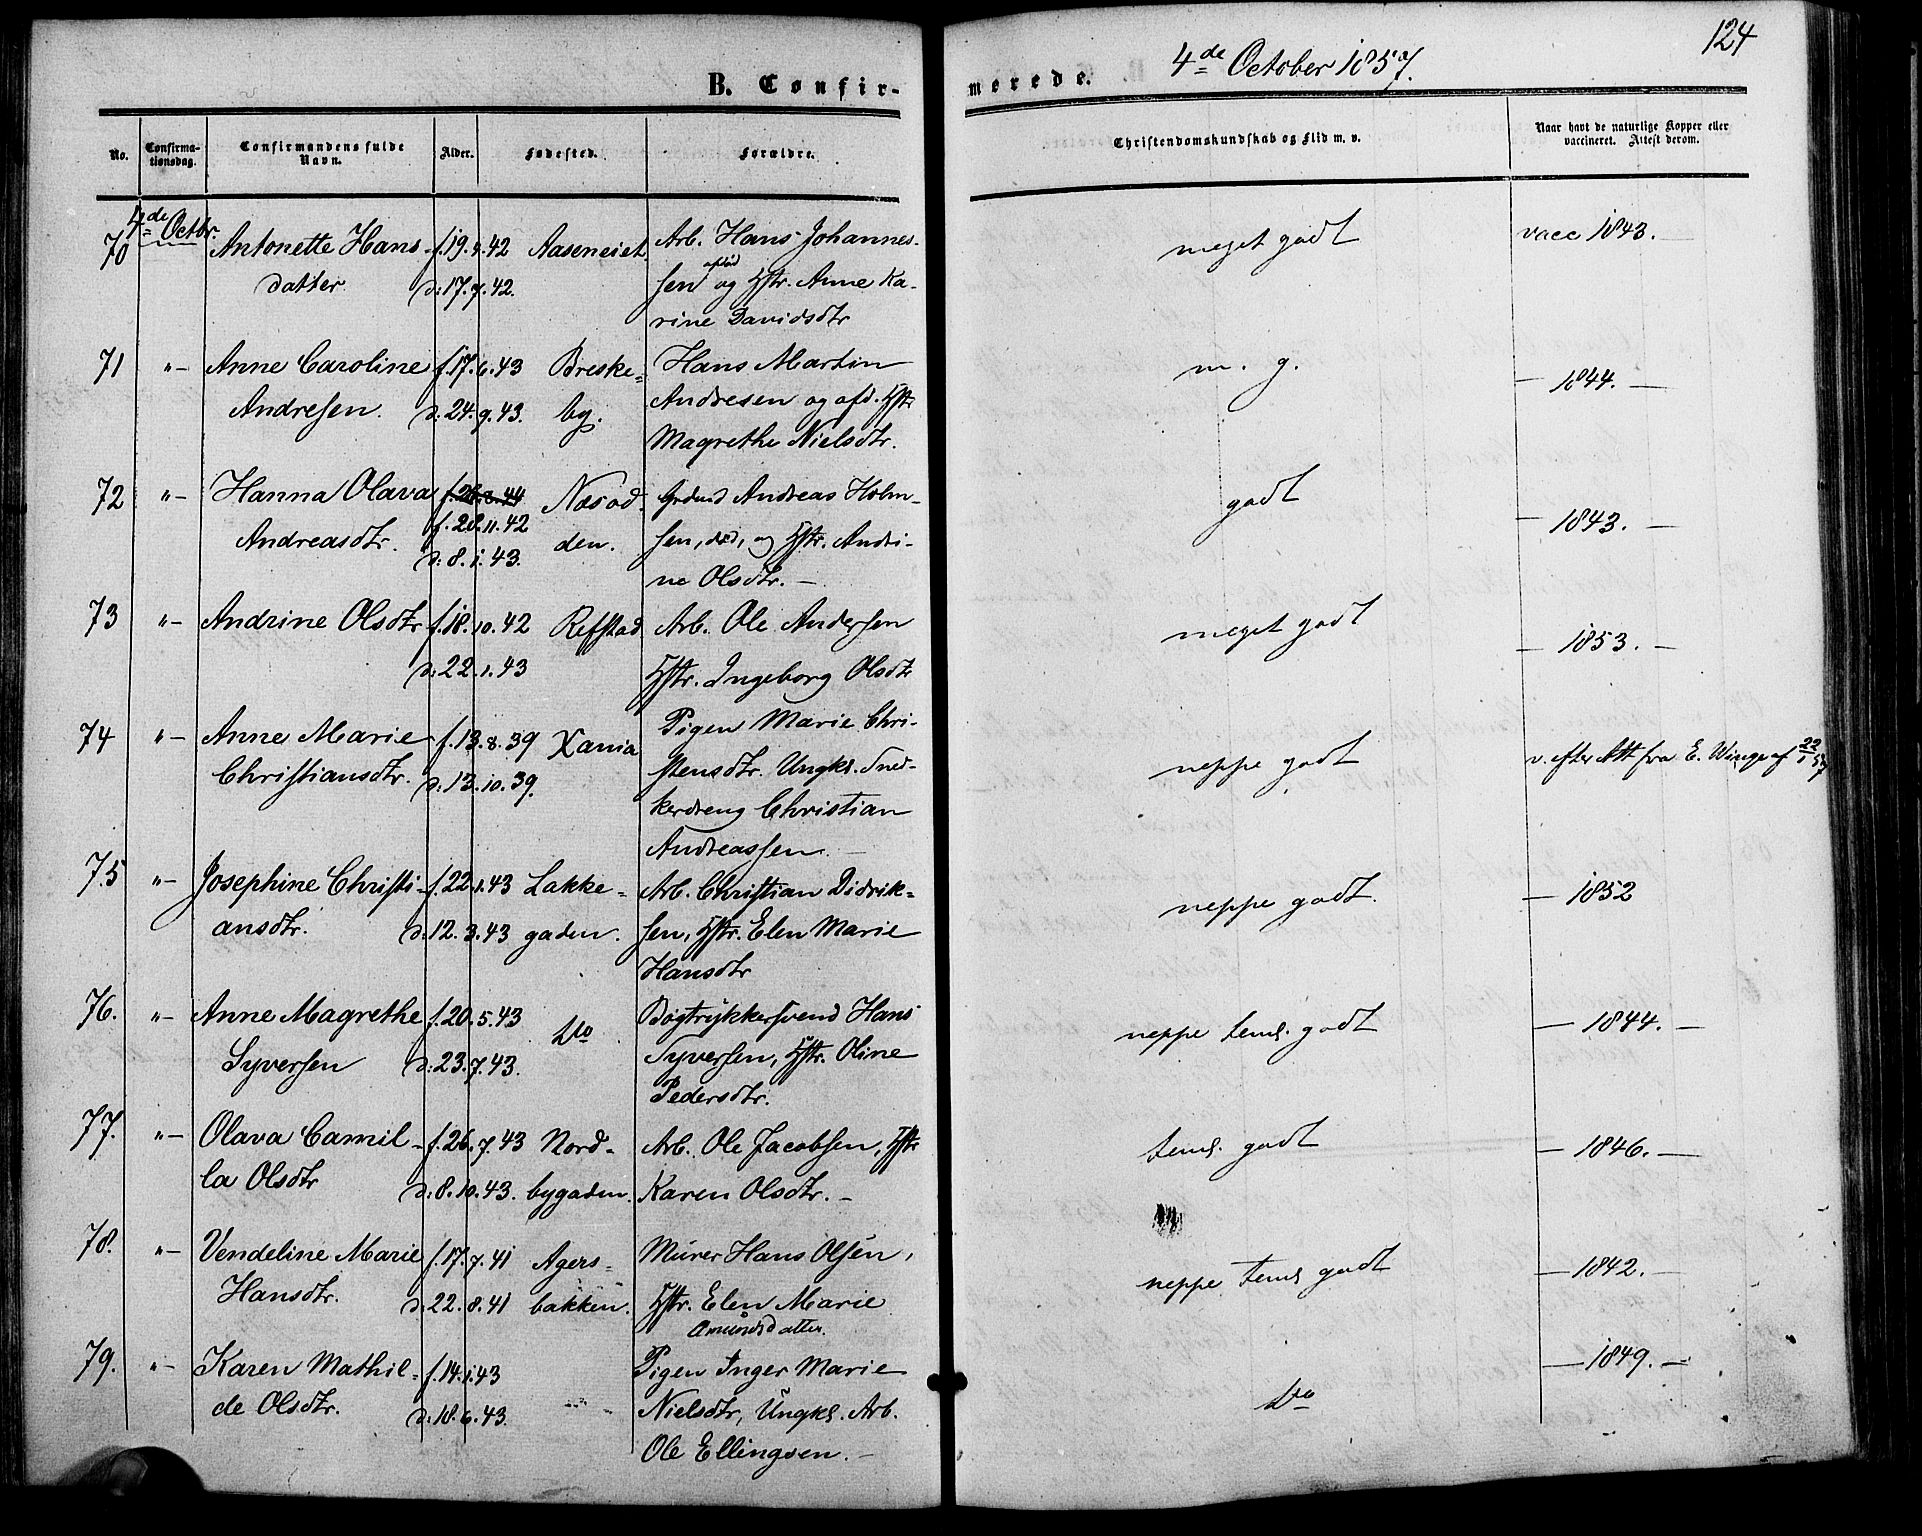 124
4de October 1857.
B. Confir-
merede.
No.
Confirma-
tionsdag.
Confirmandens fulde
Navn.
Alder.
Fødested.
Forældre.
Christendomskundskab og Flid m. v.
Naar havt de naturlige Kopper eller
vaccineret. Attest derom.
4de Octbr.
70 Antonette Hans- f. 19. 4. 42 Aaseneiet. Arb. Hans Johannes- meget godt vacc 1843. —
datter d: 17. 7. 42. sen afdød og Hstr. Anne Ka-
rine Davidsdtr
71 "— Anne Caroline f. 17. 6. 43 Breske- Hans Martin m. g. — 1844. —
Andresen. d. 24. 9. 43. by. Andresen og afd. Hstr
Magrethe Nielsdtr.
72 "— Hanna Olava f. 26. 8. 44 Næsod- Grdmd Andreas Holm- godt — 1843. —
f. 28. 11. 42
Andreasdtr. d: 8. 1. 43. den. sen, død, og Hstr. Andri-
ne Olsdtr. —
73 "— Andrine Olsdtr f. 18. 10. 42 Refstad Arb. Ole Andersen meget godt — 1853. —
d: 22. 1. 43 Hstr. Ingeborg Olsdtr
74 "— Anne Marie f. 13. 8. 39 Xania Pigen Marie Chri- neppe godt v. efter Att fra E. Winge af 22/1 57
Christiansdtr. d: 13. 10. 39. stensdtr. Ungkl. Sned-
kerdreng Christian
Andreassen. —
75 "— Josephine Christi- f. 22. 1. 43 Lakke- Arb. Christian Didrik- neppe godt. — 1852
ansdtr. d: 12. 3. 43 gaden. sen, Hstr. Elen Marie
Hansdtr
76. "— Anne Magrethe f. 20. 5. 43 Do Bogtrykkersvend Hans neppe teml. godt — 1844. —
Syversen d: 23. 7. 43. Syversen, Hstr. Oline
Pedersdtr.
77. "— Olava Camil- f. 26. 7. 43 Nord- Arb. Ole Jacobsen, Hstr teml. godt — 1846. —
la Olsdtr d: 8. 10. 43. bygaden. Karen Olsdtr. —
78. "— Vendeline Marie f. 17. 7. 41 Agers- Murer Hans Olsen, neppe teml godt — 1842. —
Hansdtr. d: 22. 8. 41 bakken. Hstr. Elen Marie
Amundsdatter.
79. "— Karen Mathil- f. 14. 1. 43 Pigen Inger Marie Do — 1849. —
de Olsdtr. d: 18. 6. 43. Nielsdtr, Ungkl. Arb.
Ole Ellingsen. —